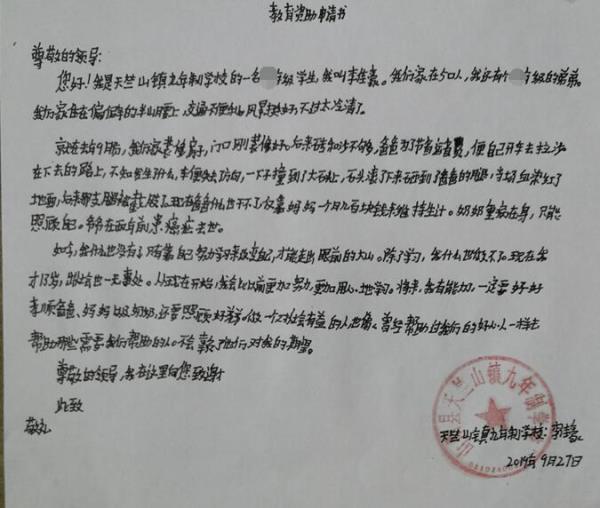 教育资助申请书
尊敬的领导:
您好!我是天竺山镇九年制学校的一名 年级学生,我叫李 。我们家在5口人,我还有个 年级的弟弟。
我们家住在偏僻的半山腰上,交通不便利,风景挺好,不过太冷清了。
就在去的 ,我们家 房子,门口刚装修好。后来 沙不够,爸爸为了节省运费,便自己开车去拉沙
在下去的路上,不知发生什么,车便失去方向,一下子撞到了大石头上,石头滚了下来砸到了爸爸的腿,当场血染红了
地面,后来那支腿被截肢了。现在爸爸什么也干不了,仅靠妈妈一个月几百块钱来维持生计。奶奶重病在身,只能
照顾自己。爷爷在两年前患癌症去世。
如今,我什么也没有了,只有靠自己努力学习来改变自己,才能走出眼前的大山。除了学习,我什么也做不了。现在我
才13岁,跑出去也一无事处。从现在开始,我会比以前更加努力,更加用心地学习。将来,我有能力,一定要好好
孝顺爸爸、妈妈以及奶奶,还要照顾好弟弟。做一个对社会有益的人,也像 曾经帮助过我们的好心人一样去
帮助那些需要我们帮助的人。不会辜负他们,对我的期望。
尊敬的领导,我在这里向您致谢!
此致
敬礼
县天竺山镇九年制学
天竺山镇九年制学校:李
2019年9月27日